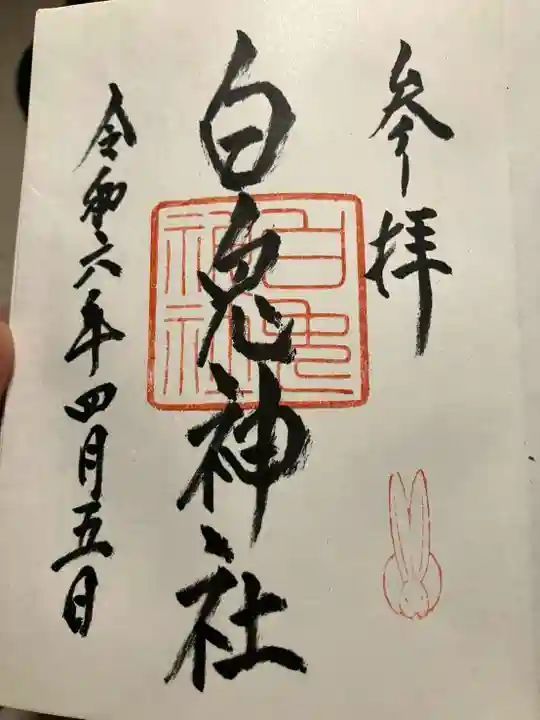 参拝
白兎神社
白兎神社
令和六年四月五日